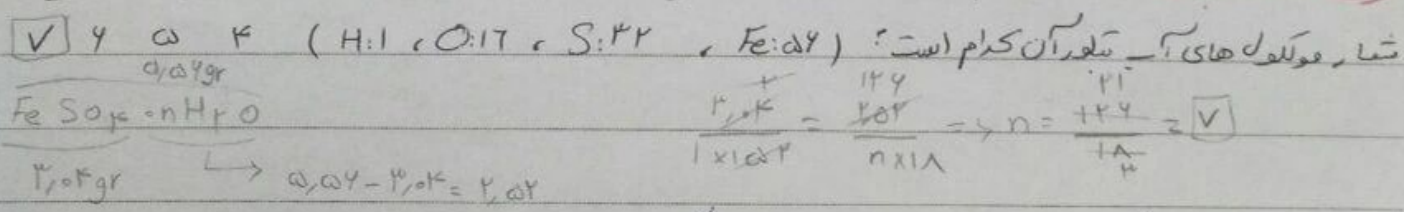 شمار مولکول های آب تبلور آن کدام است؟ (Fe:۵۶ ، S:۳۲ ، O:۱۶ ، H:۱) ۴ ۵ ۶ ۷
۵,۵۶gr
FeSO۴ . nH۲O
۳,۰۴gr ↳ ۵,۵۶-۳,۰۴=۲,۵۲
۳,۰۴/۱×۱۵۲ = ۲۵۲/n×۱۸ => n = ۱۲۶/۱۸ = ۷